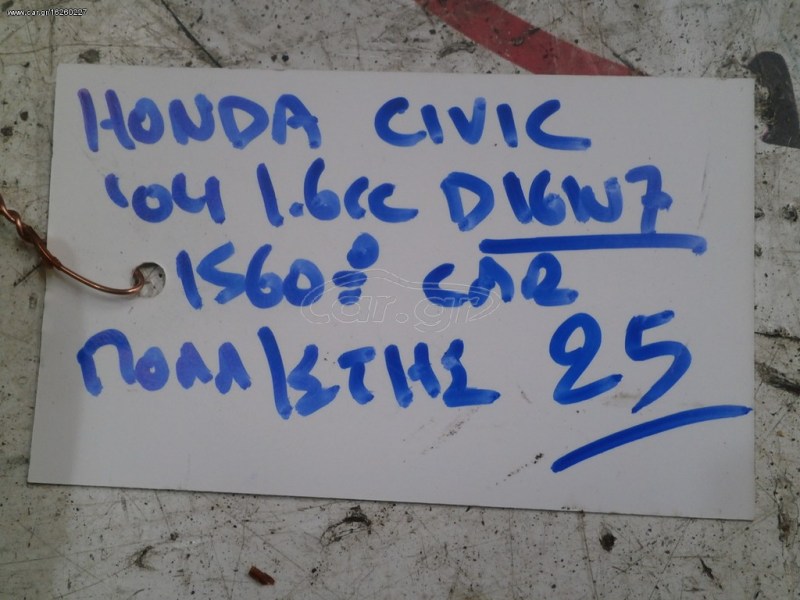 www.car.gr/16260227
HONDA CIVIC
'04 1.6cc D16W7
1560 CAR
ΠΟΛΛ/ΣΤΗΣ 25
car.gr